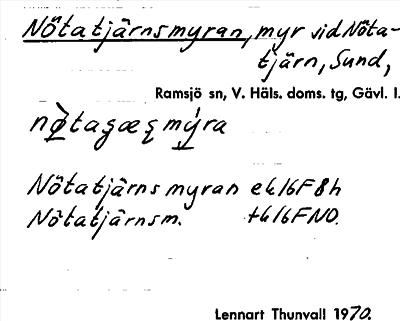 Nötatjärnsmyran, myr vid Nöta-
tjärn, Sund,
Ramsjö sn, V. Häls. doms. tg, Gävl. l.
Nötatjärnsmyran ek 16F8h
Nötatjärnsm. tk 16FNO.
Lennart Thunvall 1970.